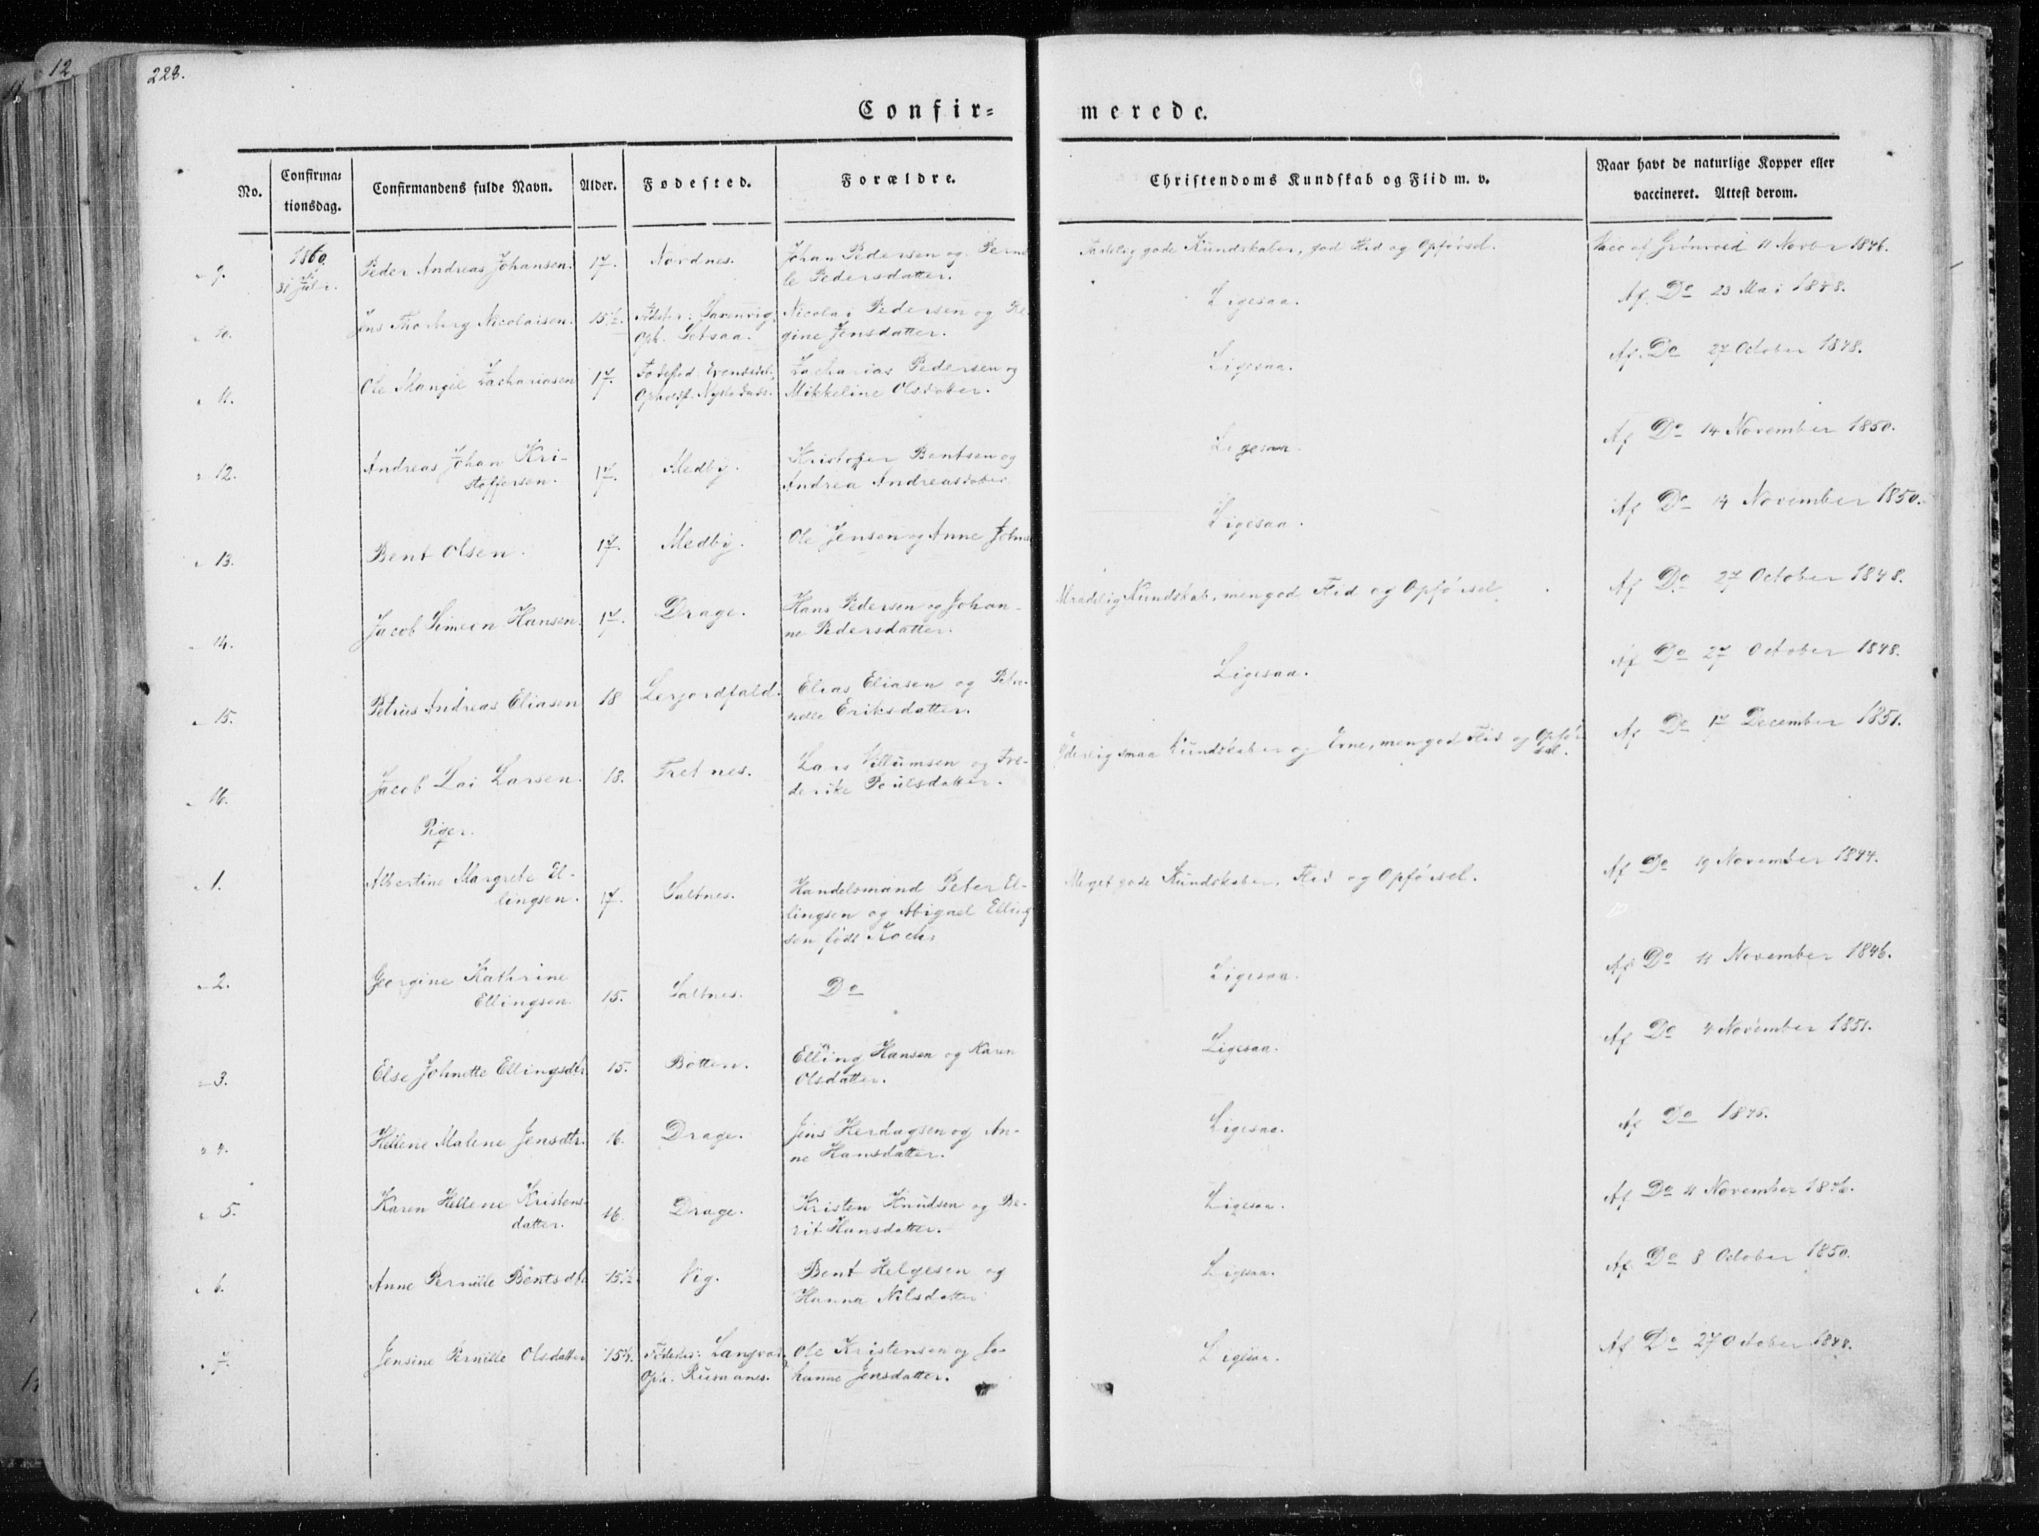 12
223.
Confir=
merede.
No.
Confirma=
tionsdag.
Confirmandens fulde Navn.
Alder.
Fødested.
Forældre.
Christendoms Kundskab og Flid m. v.
Naar havt de naturlige Kopper eller
vaccineret. Attest derom.
9. 1860 Peder Andreas Johansen. 17. Nordnes. Johan Pedersen og Pernil-
31 Juli. le Pedersdatter.
gode Kundskaber, god Flid og Opførsel. Vacc af Grønvold 11 Novbr 1846.
10. Jens Nicolaisen. 15½. Nicolai Pedersen og Re-
Oph. gine Jensdatter.
Ligesaa. Af Do 23 Mai 1848.
11. Ole Zachariasen 17. Fødested Zacharias Pedersen og
Opholdst. Mikkeline Olsdatter.
Ligesaa. Af Do 27 October 1848.
12. Andreas Johan Kri- 17. Medby. Kristofer Bentsen og
stoffersen. Andrea Andreasdatter
Ligesaa Af Do 14 November 1850.
13. Bent Olsen. 17. Medby. Ole Jensen og Anne Johns
Ligesaa. Af Do 14 November 1850.
14. Jacob Simeon Hansen 17. Drage. Hans Pedersen og Johan-
ne Pedersdatter.
Maadelig Kundskab, men god Flid og Opførsel. Af Do 27 October 1848.
15. Petrus Andreas Eliasen 18 Lerjordfald. Elias Eliasen og Petro-
nelle Eriksdatter.
Ligesaa. Af Do 27 October 1848.
16. Jacob Lai Larsen. 18. Tretnes. Lars Villumsen og Fre-
derike Poulsdatter.
Yderlig smaa Kundskaber og Evne, men god Flid og Opfør-
sel. Af Do 17 December 1851.
Piger.
1. Albertine Margrete El- 17. Saltnes. Handelsmand Peter El-
lingsen. lingsen og Abigael Elling
sen født Koch.
Meget gode Kundskaber, Flid og Opførsel. Af Do 19 November 1844.
2. Georgine Kathrine
Ellingsen 15. Saltnes. Do
Ligesaa. Af Do 11 November 1846.
3. Else Johnette Ellingsdtr 15. Botten. Elling Hansen og Karen
Olsdatter.
Ligesaa. Af Do 4 November 1851.
4. Hellene Malene Jensdtr. 16. Drage. Jens Herdagsen og An-
ne Hansdatter.
Ligesaa. Af Do 1845.
5. Karen Hellene Kristens- 16. Drage. Kristen Knudsen og Be-
datter. rit Hansdatter.
Ligesaa. Af Do 11 November 1846.
6. Anne Pernille Bentsdtr 15½ Vig. Bent Helgesen og
Hanna Nilsdatter
Ligesaa. Af Do 8 October 1850.
7. Jensine Pernille Olsdatter 15½. Fødested: Ole Kristensen og Jo-
Oph. Rusmanes. hanne Jensdatter.
Ligesaa. Af Do 27 October 1848.